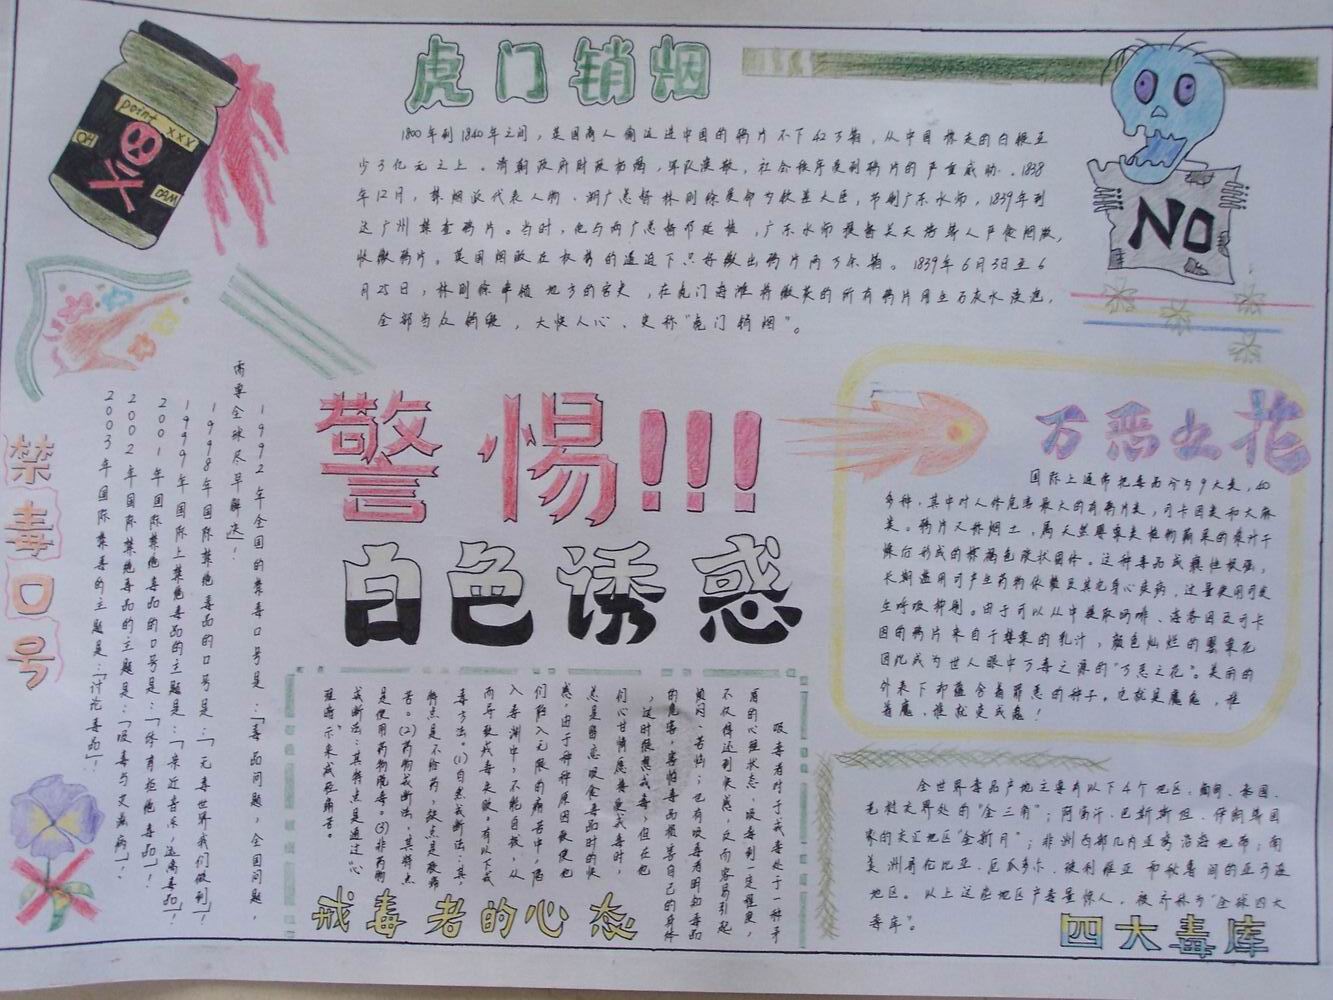 point
xxx
OH
DAM
虎门销烟
1800年到1840年之间，英国商人偷运进中国的鸦片不下42万箱，从中国掠走的白银至
少3亿元之上。清朝政府财政枯竭，军队涣散，社会秩序受到鸦片的严重威胁。1838
年12月，禁烟派代表人物、湖广总督林则徐受命为钦差大臣，节制广东水师，1839年到
达广州禁查鸦片。当时，他与两广总督邓廷桢，广东水师提督关天培等人严查烟贩，
收缴鸦片。英国烟贩在林的逼迫下只好缴出鸦片两万余箱。1839年6月3日至6
月25日，林则徐率领地方的官吏，在虎门海滩将缴获的所有鸦片用生石灰水浸泡，
全部当众销毁，大快人心、史称“虎门销烟”。
NO
警惕!!!
白色诱惑
禁毒口号
1992年全国的禁毒口号是：「毒品问题，全国问题，
需要全球尽早解决」！
1998年国际禁绝毒品的口号是：「无毒世界我们做到」！
1999年国际上禁绝毒品的主题是：「亲近音乐，远离毒品」！
2001年国际禁绝毒品的口号是：「体育拒绝毒品」！
2002年国际禁绝毒品的主题是：「吸毒与艾滋病」！
2003年国际禁毒的主题是：「讨论毒品」！
万恶之花
国际上通常把毒品分为9大类，40
多种，其中对人体危害最大的有鸦片类，可卡因类和大麻
类。鸦片又称烟土，属天然罂粟类植物蒴果的浆汁干
燥后形成的棕褐色膏状固体。这种毒品成瘾性极强，
长期滥用可产生药物依赖及其它身心疾病，过量使用可发
生呼吸抑制。由于可以从中提取吗啡、海洛因及可卡
因的鸦片来自于罂粟的乳汁，颜色灿烂的罂粟花
因此成为世人眼中万毒之源的“万恶之花”。美丽的
外表下却蕴含着罪恶的种子。它就是魔鬼，谁
着魔，谁就变成鬼！
吸毒者对于戒毒处于一种矛
盾的心理状态，吸毒到一定程度，
不仅得不到快感，反而容易引起
烦闷、苦恼；也有吸毒者明知毒品
的危害，害怕毒品损害自己的身体
，这时很想戒毒，但在他
们心甘情愿接受戒毒时，
总是留恋吸食毒品时的快
感，由于种种原因驱使他
们陷入无限的痛苦中，陷
入毒渊中，不能自拔，从
而导致戒毒失败。有以下戒
毒方法。(1)自然戒断法：其
特点是不给药，缺点是较痛
苦。(2)药物戒断法，其特点
是使用药物脱毒。(3)非药物
戒断法：其特点是通过“心
理暗示来减轻痛苦。
戒毒者的心态
全世界毒品产地主要有以下4个地区：缅甸、泰国、
老挝交界处的“金三角”；阿富汗、巴斯斯坦、伊朗等国
家的交汇地区“金新月”；非洲西部几内亚湾沿海地带；南
美洲哥伦比亚、厄瓜多尔、玻利维亚和秘鲁间的亚马逊
地区。以上这些地区产毒量惊人，被并称为“全球四大
毒库”。
四大毒库